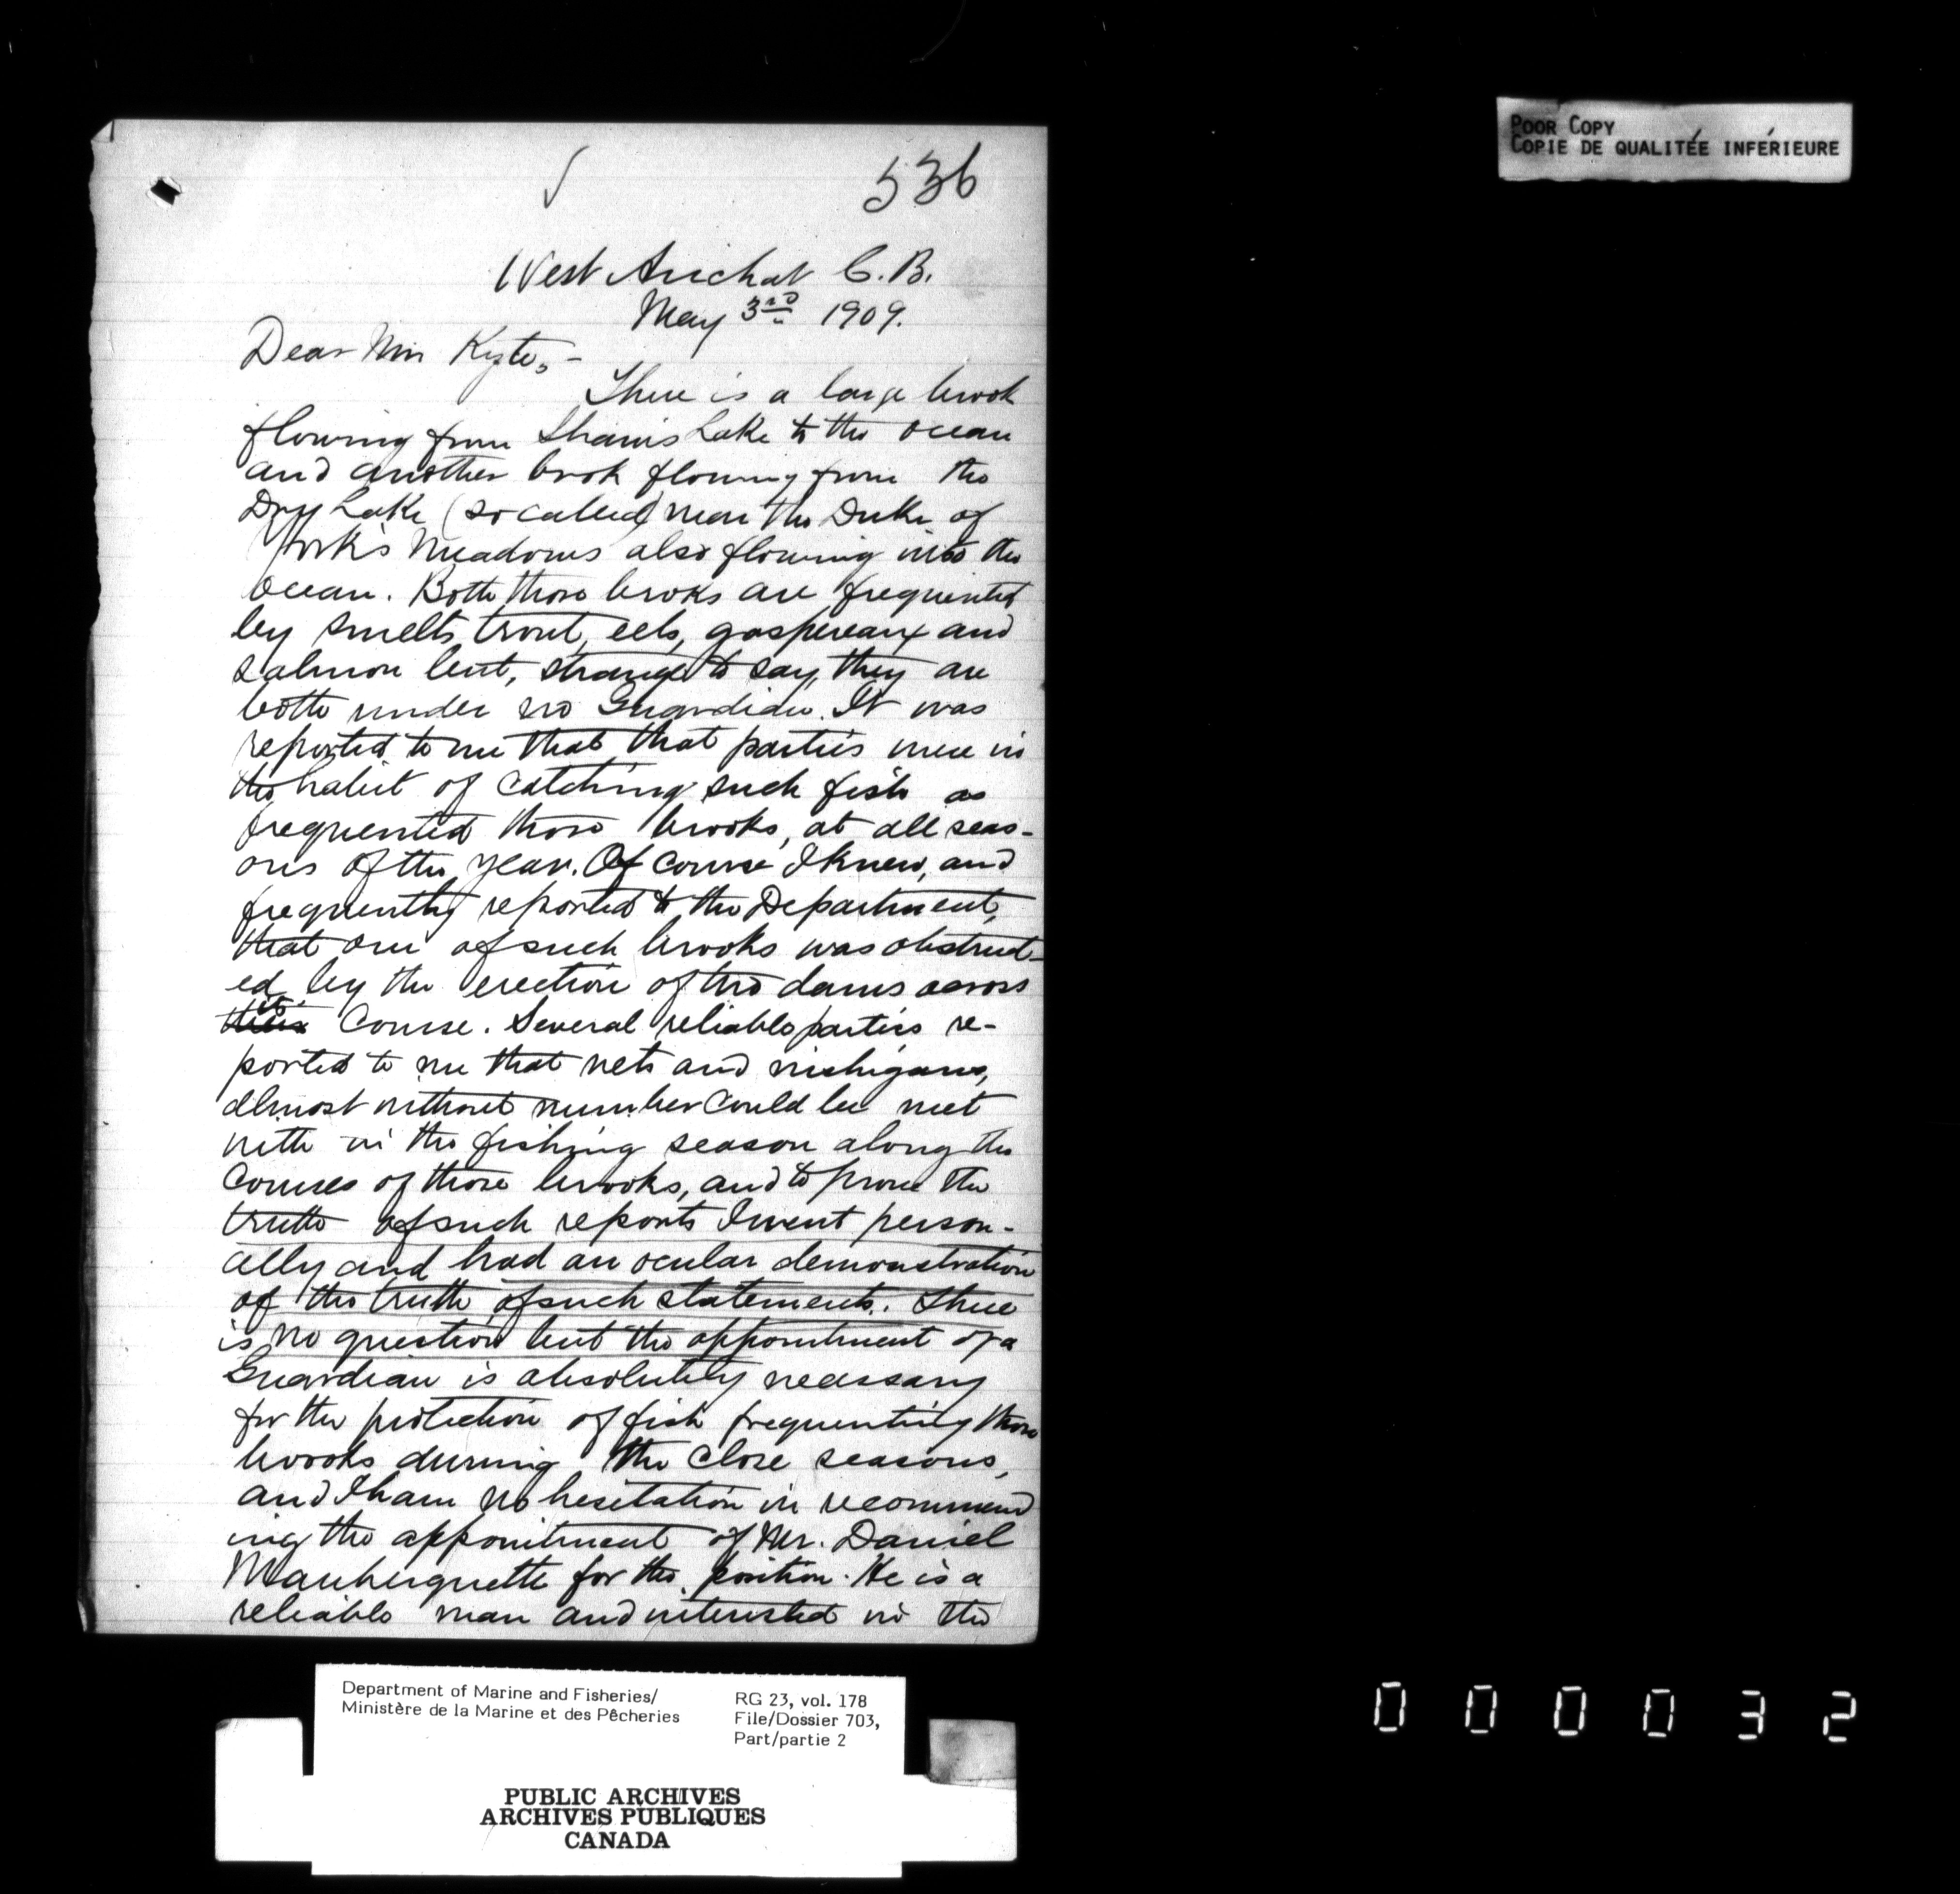 POOR COPY
COPIE DE QUALITÉE INFÉRIEURE
536
West Arichat C.B.
May 3rd 1909.
Dear Mr Kyte,-
There is a large brook
flowing from Shaws Lake to the ocean
and another brook flowing from the
Dry Lake (so called) near the Duke of
York's Meadows also flowing into the
ocean. Both those brooks are frequented
by smelts, trout, eels, gaspereaux and
salmon but, strange to say, they are
both under no Guardian. It was
reported to me that that parties were in
the habit of catching such fish as
frequented those brooks, at all seas-
ons of the year. Of course I knew, and
frequently reported to the Department,
that one of such brooks was obstruct-
ed by the erection of two dams across
its course. Several reliable parties re-
ported to me that nets and nichigans,
almost without number could be met
with in the fishing season along the
courses of those brooks, and to prove the
truth of such reports I went person-
ally and had an ocular demonstration
of the truth of such statements. There
is no question but the appointment of a
Guardian is absolutely necessary
for the protection of fish frequenting those
brooks during the close seasons,
and I have no hesitation in recommend
ing the appointment of Mr. Daniel
Mauherquette for the position. He is a
reliable man and interested in the
Department of Marine and Fisheries/
Ministère de la Marine et des Pêcheries
RG 23, vol. 178
File/Dossier 703,
Part/partie 2
PUBLIC ARCHIVES
ARCHIVES PUBLIQUES
CANADA
000032